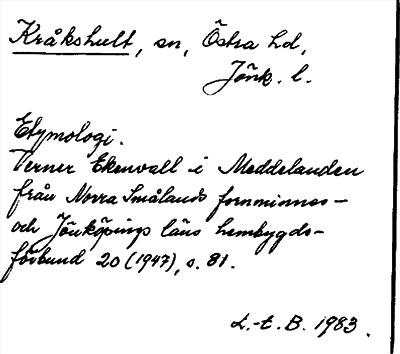 Kråkshult, sn, Östra hd,
Jönk. l.
Etymologi.
Verner Ekenvall i Meddelanden
från Norra Smålands fornminnes-
och Jönköpings läns hembygds-
förbund 20 (1947), s. 81.
L.-t. B. 1983.